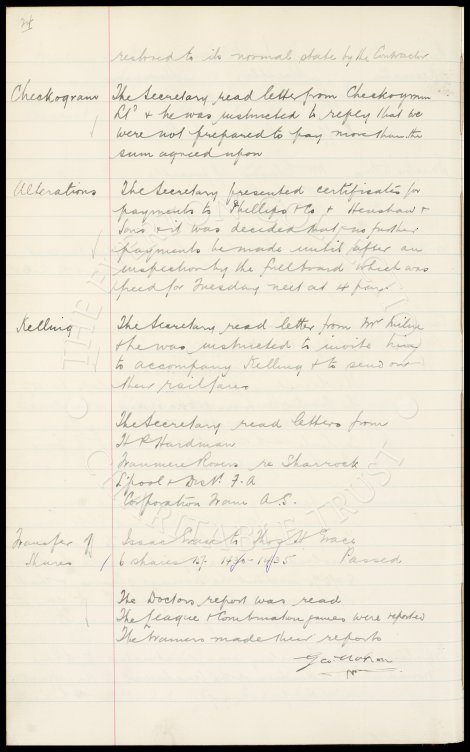 restored to its normal state by the Contractor
Checkograms The Secretary read letter from Checkogram
Ltd & he was instructed to reply that we
were not prepared to pay more than the
sum agreed upon
Alterations The Secretary presented certificates for
payments to Phillips & Co & Henshaw &
Sons & it was decided that no further
payments be made until after an
inspection by the full board which was
fixed for Tuesday next at 4 p.m.
Kelling The Secretary read letter from Mr Milne
& he was instructed to invite him
to accompany Kelling & to send on
their railfares
The Secretary read letters from
H R Hardman
Tranmere Rovers re Sharrock
L'pool & Dist. F.A
Corporation Tram A.C.
Transfer of Isaac to Thos H Grace
Shares 6 shares Passed
The Doctors report was read
The League & Combination games were reported
The Trainers made their reports